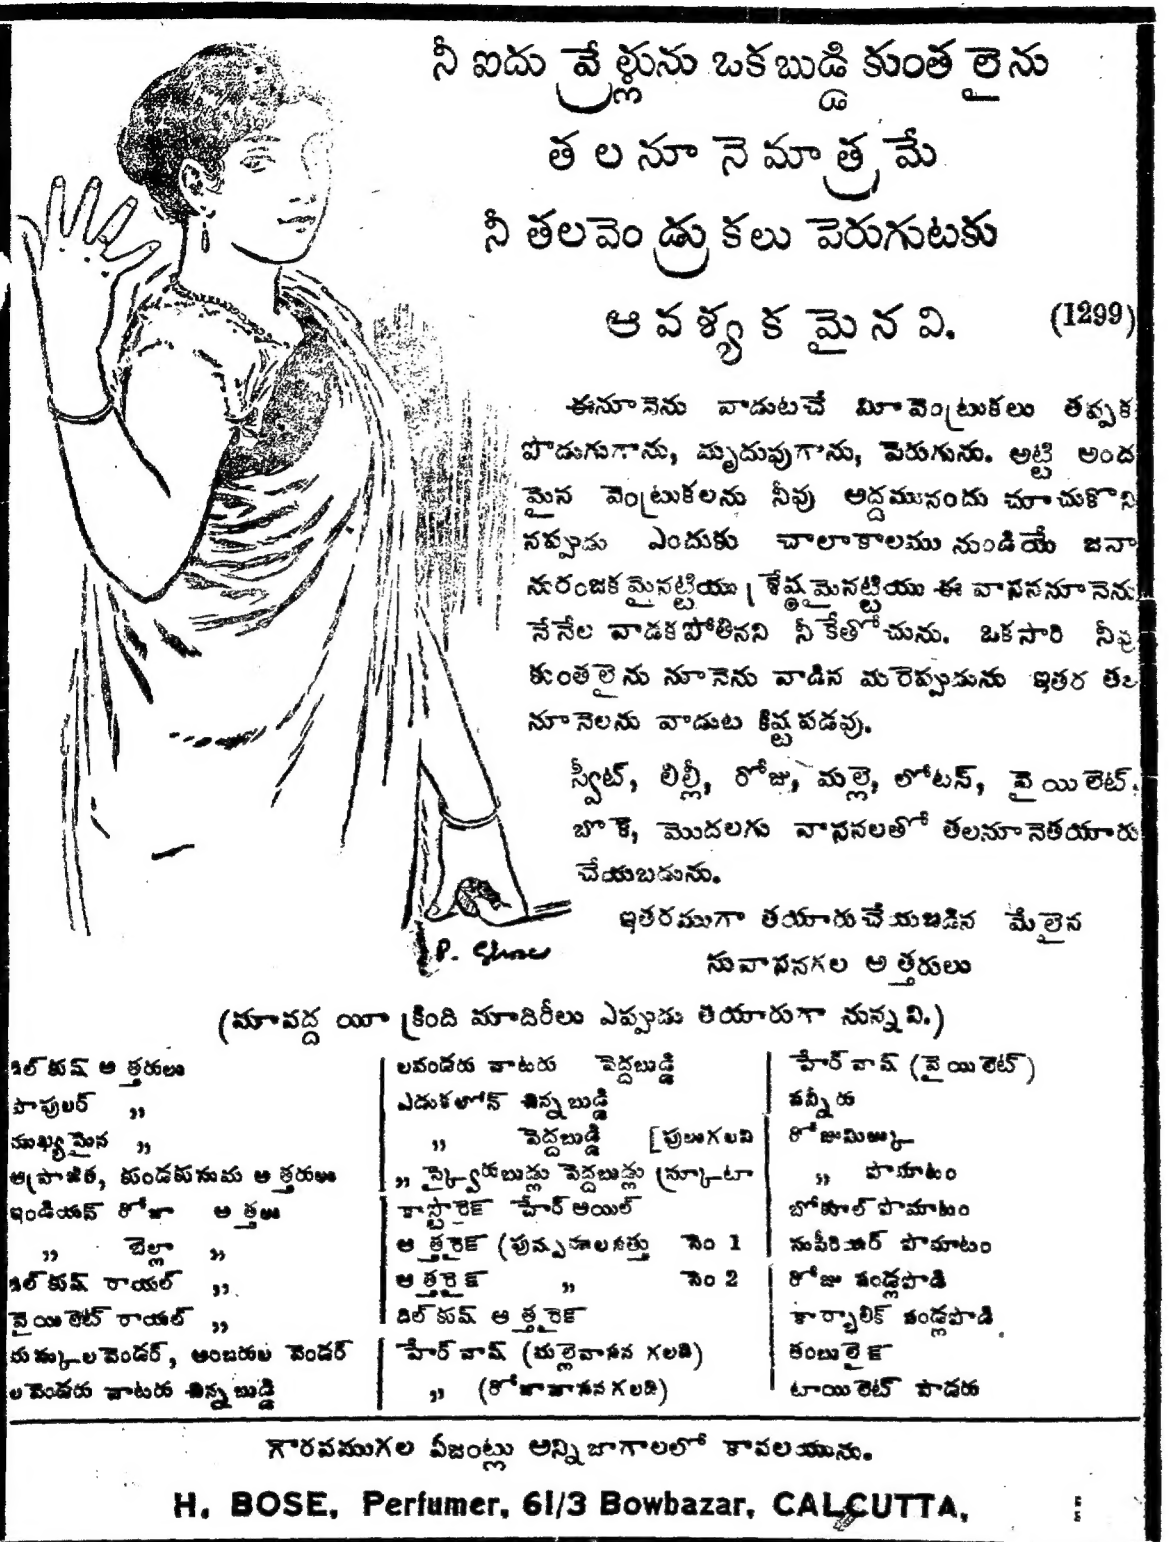 నీ ఐదు వ్రేళ్లును ఒకబుడ్డి కుంతలైను
తలనూనెమాత్రమే
నీ తలవెండ్రుకలు పెరుగుటకు
ఆవళ్యకమైనవి. (1299)
ఈనూనెను వాడుటచే మీవెంట్రుకలు తప్పక
పొడుగుగాను, మృదువుగాను, పెరుగును. అట్టి అంద
మైన వెంట్రుకలను నీవు అద్దమునందు చూచుకొని
నప్పుడు ఎందుకు చాలాకాలము నుండియే జనా
నురంజకమైనట్టియు శ్రేష్ఠమైనట్టియు ఈ వాసననూనెను
నేనేల వాడకపోతినని నీకేతోచును. ఒకసారి నీవు
కుంతలైను నూనెను వాడిన మరెప్పుడును ఇతర తల
నూనెలను వాడుట కిష్టపడవు.
స్వీట్, లిల్లీ, రోజు, మల్లె, లోటస్, వైయిలెట్,
బొకే, మొదలగు వాసనలతో తలనూనెతయారు
చేయబడును.
ఇతరముగా తయారుచేయబడిన మేలైన
సువాసనగల అత్తరులు
P.
(మావద్ద యీ క్రింది మాదిరీలు ఎప్పుడు తయారుగా నున్నవి.)
దిల్ కుష్ అత్తరులు
పాపులర్ ,,
ముఖ్యమైన ,,
కుండకుసుమ అత్తరులు
ఇండియన్ రోజా అత్తరు
,, బెల్లా ,,
దిల్ కుష్ రాయల్ ,,
వైయిలెట్ రాయల్ ,,
వెండర్, వెండర్
లవెండరు వాటరు చిన్నబుడ్డి
లవండరు వాటరు పెద్దబుడ్డి
ఎడుకలోన్ చిన్నబుడ్డి
,, పెద్దబుడ్డి
,, పెద్దబుడ్లు
కాస్టారైక్ హేర్ ఆయిల్
అత్తరైక్ నెం 1
అత్తరైక్ ,, నెం 2
దిల్ కుష్ అత్తరైక్
హేర్ వాష్ (మల్లెవాసన గలది)
,, (రోజావాసనగలది)
హేర్ వాష్ (వైయిలెట్)
పన్నీరు
రోజుమిల్కు
,, పొమాటం
బోకూల్ పొమాటం
సుపీరియర్ పొమాటం
రోజు పండ్లపొడి
కార్బాలిక్ పండ్లపొడి
తంబులైన్
టాయిలెట్ పౌడరు
గౌరవముగల ఏజంట్లు అన్నిజాగాలలో కావలయును.
H. BOSE, Perfumer, 61/3 Bowbazar, CALCUTTA,